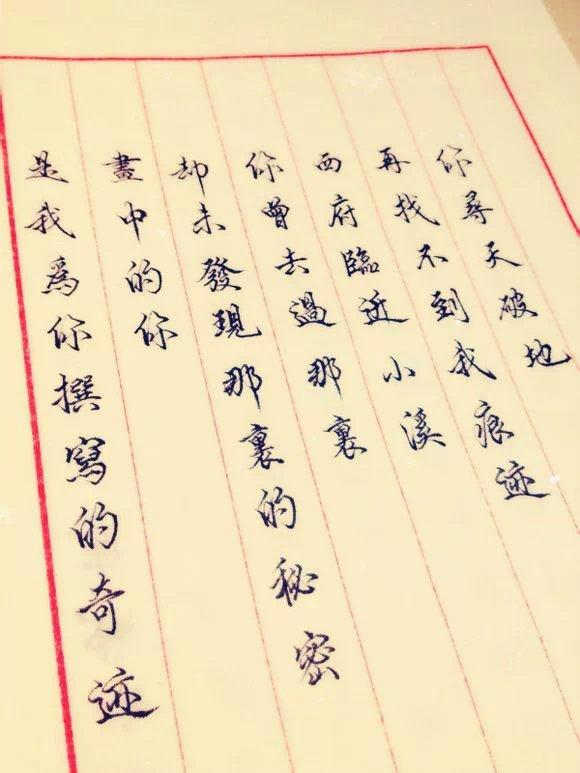 你尋天破地
再找不到我痕迹
西府臨近小溪
你曾去過那裏
却未發現那裏的秘密
畫中的你
是我爲你撰寫的奇迹